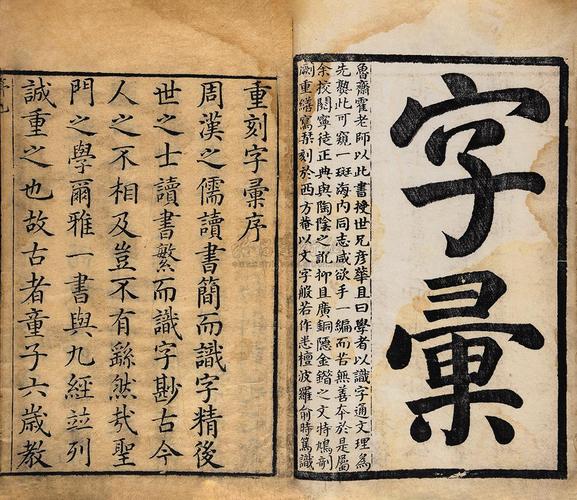 字彙
魯齋霍老師以此書授世兄彥華且曰學者以識字通文理為
先此可窺一斑海內同志咸欲手一編而苦無善本於是屬
余校閱寧徒正典與陶陰之訛抑且廣銅隱金鍇之文特鳩剞
劂重繕寫栞刻於西方菴以文字般若作悉檀波羅俞時篤識
重刻字彙序
周漢之儒讀書簡而識字精後
世之士讀書繁而識字尠古今
人之不相及豈不有繇然哉聖
門之學爾雅一書與九經竝列
誠重之也故古者童子六歲教